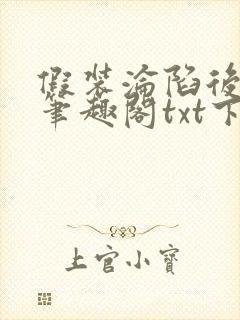 假装沦陷後
笔趣阁txt下
上官小寶